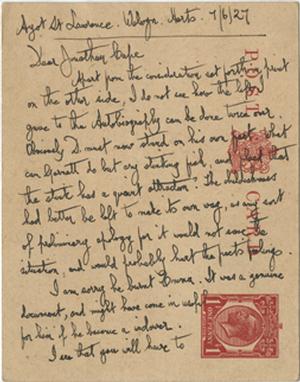 Ayot St Lawrence. Welwyn. Herts. 7/6/27
Dear Jonathan Cape
Apart from the consideration set forth in print
on the other side, I do not see how the left I
gave to the Autobiography can be done twice over.
Obviously D. must now stand on his own feet. What
can Garnett do but cry stinking fish, and plead that
the stink has a quaint attraction? The mischievousness
had better be left to make its own way, as any sort
of preliminary apology for it would not save the
situation, and would probably hurt the poet's feelings.
I am sorry he burnt Emma. It was a genuine
document, and might have come in useful
for him if he become a widower.
I see that you will have to
POST CARD
ONE PENNY
1 1